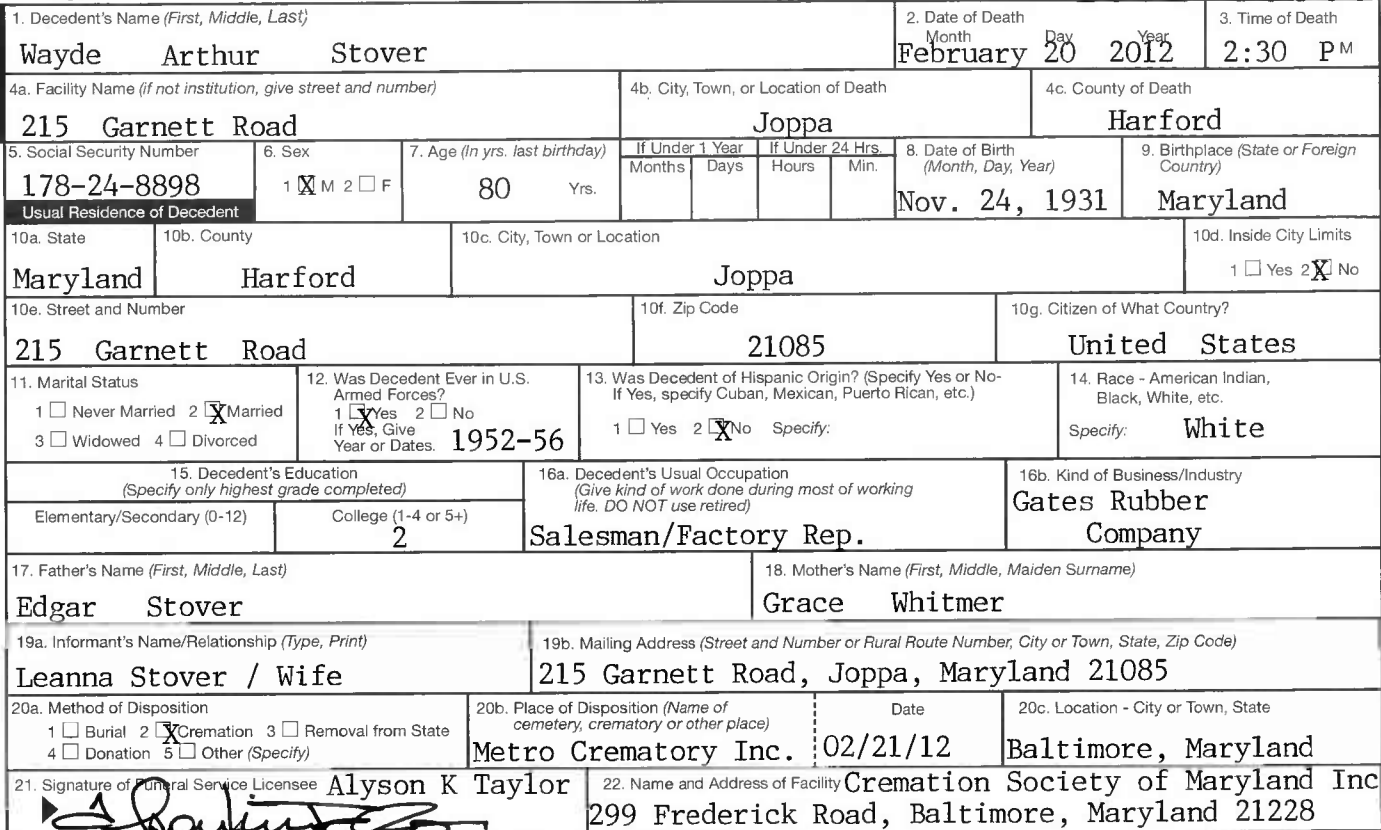 1. Decedent's Name (First, Middle, Last)
Wayde Arthur Stover
2. Date of Death
Month Day Year
February 20 2012
3. Time of Death
2:30 PM
4a. Facility Name (if not institution, give street and number)
215 Garnett Road
4b. City, Town, or Location of Death
Joppa
4c. County of Death
Harford
5. Social Security Number
178-24-8898
6. Sex
1 X M 2 ☐ F
7. Age (In yrs. last birthday)
80 Yrs.
If Under 1 Year
Months Days
If Under 24 Hrs.
Hours Min.
8. Date of Birth
(Month, Day, Year)
Nov. 24, 1931
9. Birthplace (State or Foreign
Country)
Maryland
Usual Residence of Decedent
10a. State
Maryland
10b. County
Harford
10c. City, Town or Location
Joppa
10d. Inside City Limits
1 ☐ Yes 2 X No
10e. Street and Number
215 Garnett Road
10f. Zip Code
21085
10g. Citizen of What Country?
United States
11. Marital Status
1 ☐ Never Married 2 X Married
3 ☐ Widowed 4 ☐ Divorced
12. Was Decedent Ever in U.S.
Armed Forces?
1 X Yes 2 ☐ No
If Yes, Give
Year or Dates. 1952-56
13. Was Decedent of Hispanic Origin? (Specify Yes or No-
If Yes, specify Cuban, Mexican, Puerto Rican, etc.)
1 ☐ Yes 2 X No Specify:
14. Race - American Indian,
Black, White, etc.
Specify: White
15. Decedent's Education
(Specify only highest grade completed)
Elementary/Secondary (0-12)
College (1-4 or 5+)
2
16a. Decedent's Usual Occupation
(Give kind of work done during most of working
life. DO NOT use retired)
Salesman/Factory Rep.
16b. Kind of Business/Industry
Gates Rubber
Company
17. Father's Name (First, Middle, Last)
Edgar Stover
18. Mother's Name (First, Middle, Maiden Surname)
Grace Whitmer
19a. Informant's Name/Relationship (Type, Print)
Leanna Stover / Wife
19b. Mailing Address (Street and Number or Rural Route Number, City or Town, State, Zip Code)
215 Garnett Road, Joppa, Maryland 21085
20a. Method of Disposition
1 ☐ Burial 2 X Cremation 3 ☐ Removal from State
4 ☐ Donation 5 ☐ Other (Specify)
20b. Place of Disposition (Name of
cemetery, crematory or other place)
Metro Crematory Inc.
Date
02/21/12
20c. Location - City or Town, State
Baltimore, Maryland
21. Signature of Funeral Service Licensee Alyson K Taylor
22. Name and Address of Facility Cremation Society of Maryland Inc
299 Frederick Road, Baltimore, Maryland 21228